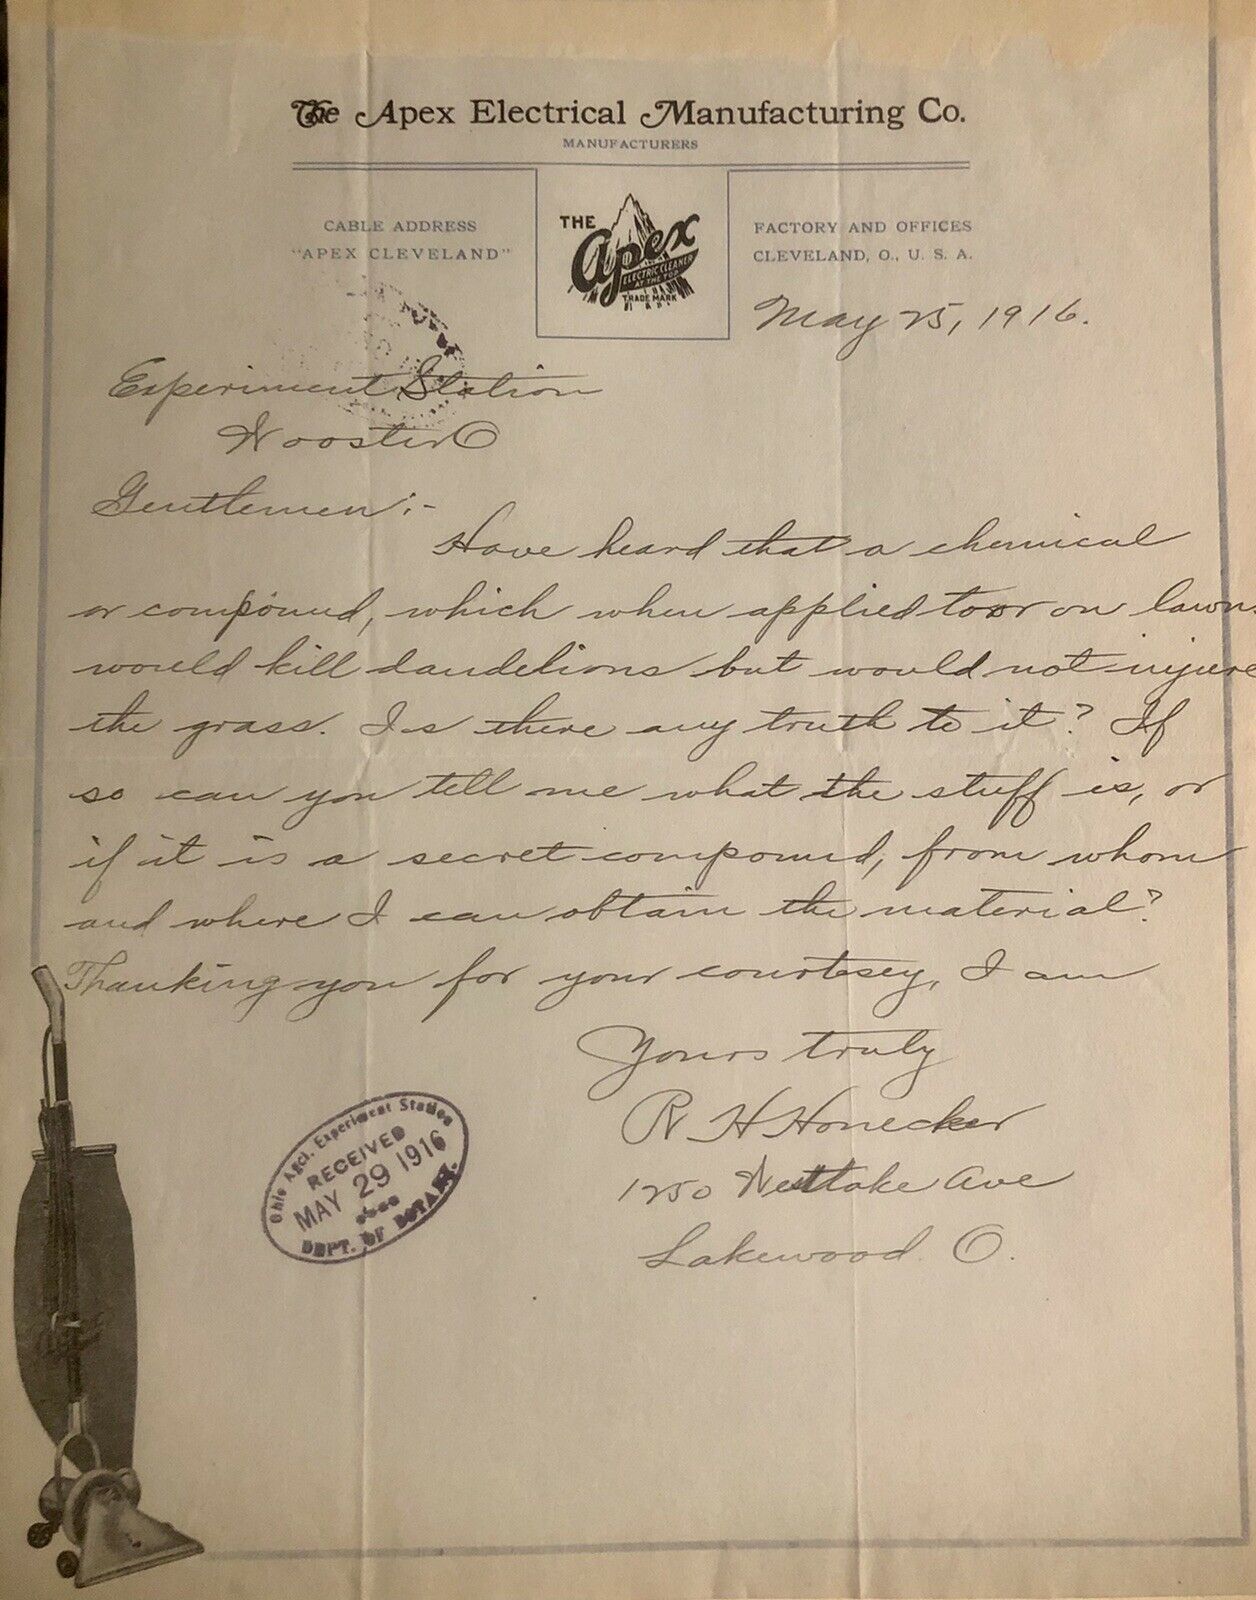 The Apex Electrical Manufacturing Co.
MANUFACTURERS
CABLE ADDRESS
"APEX CLEVELAND"
THE
Apex
ELECTRIC CLEANER
AT THE TOP
TRADE MARK
FACTORY AND OFFICES
CLEVELAND, O., U. S. A.
May 25, 1916.
Experiment Station
Wooster O
Gentlemen:-
Have heard that a chemical
or compound, which when applied to or on lawns
would kill dandelions but would not injure
the grass. Is there any truth to it? If
so can you tell me what the stuff is, or
if it is a secret compound, from whom
and where I can obtain the material?
Thanking you for your courtesey, I am
Yours truly
R H Honecker
1250 Westlake Ave
Lakewood O.
Ohio Agcl. Experiment Station
RECEIVED
MAY 29 1916
DEPT. OF BOTANY.